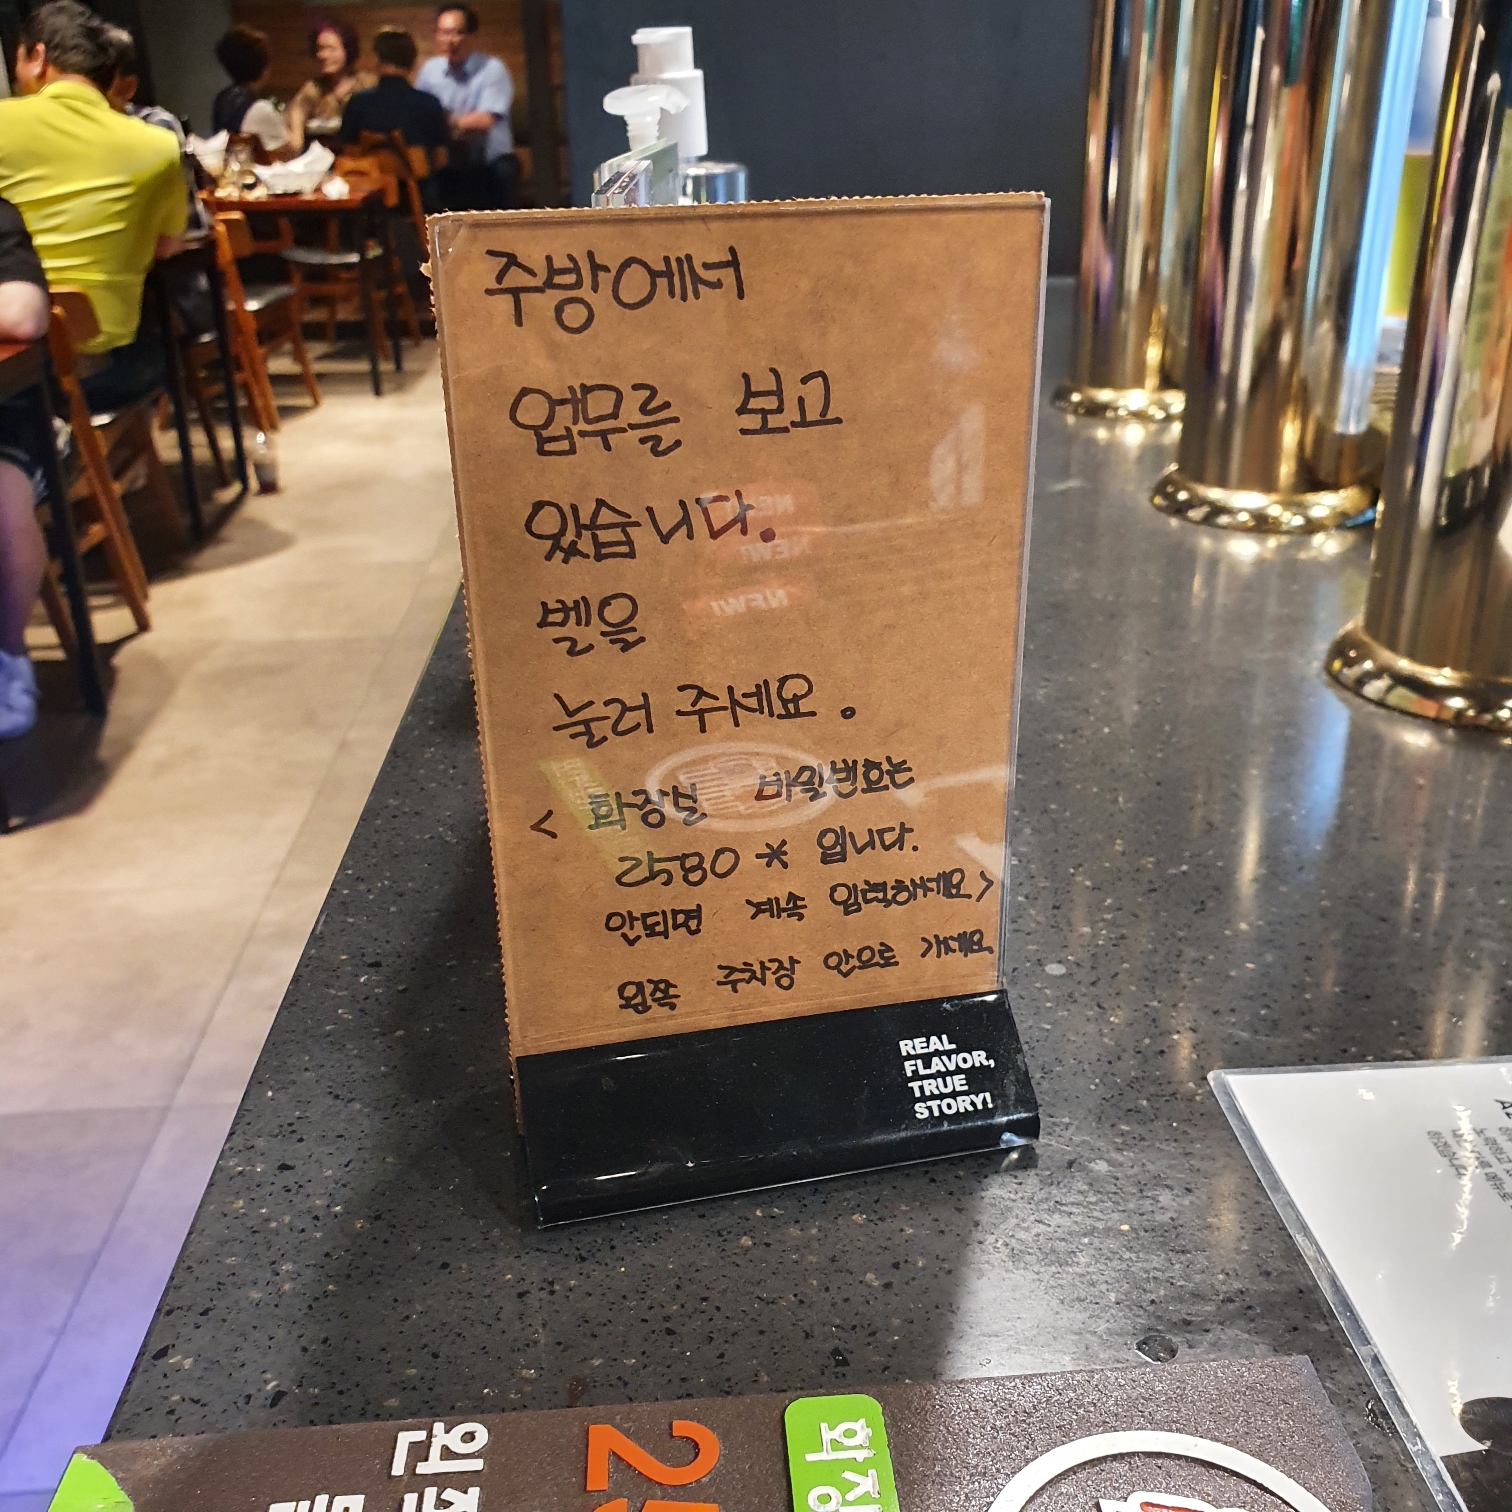 주방에서
업무를 보고
있습니다.
벨을
눌러 주세요.
< 화장실 비밀번호는
2580 * 입니다.
안되면 계속 입력하세요>
왼쪽 주차장 안으로 가세요
REAL
FLAVOR,
TRUE
STORY!
NEW!